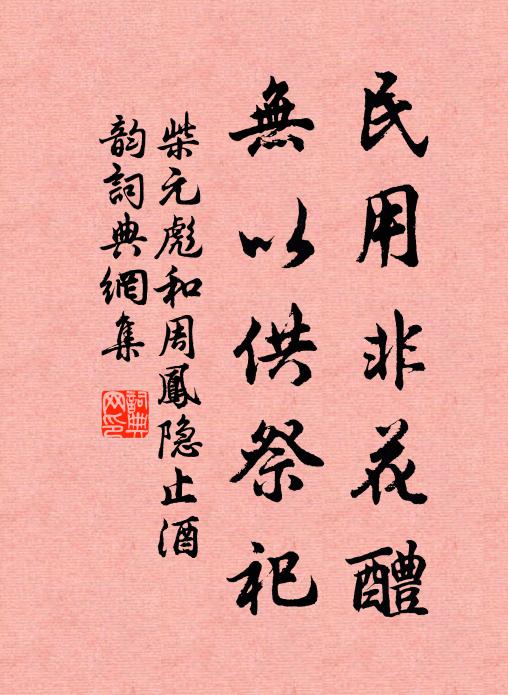 民用非花醴
無以供祭祀
柴元彪和周鳳隐止酒
韵詞典網集
詞典
网印